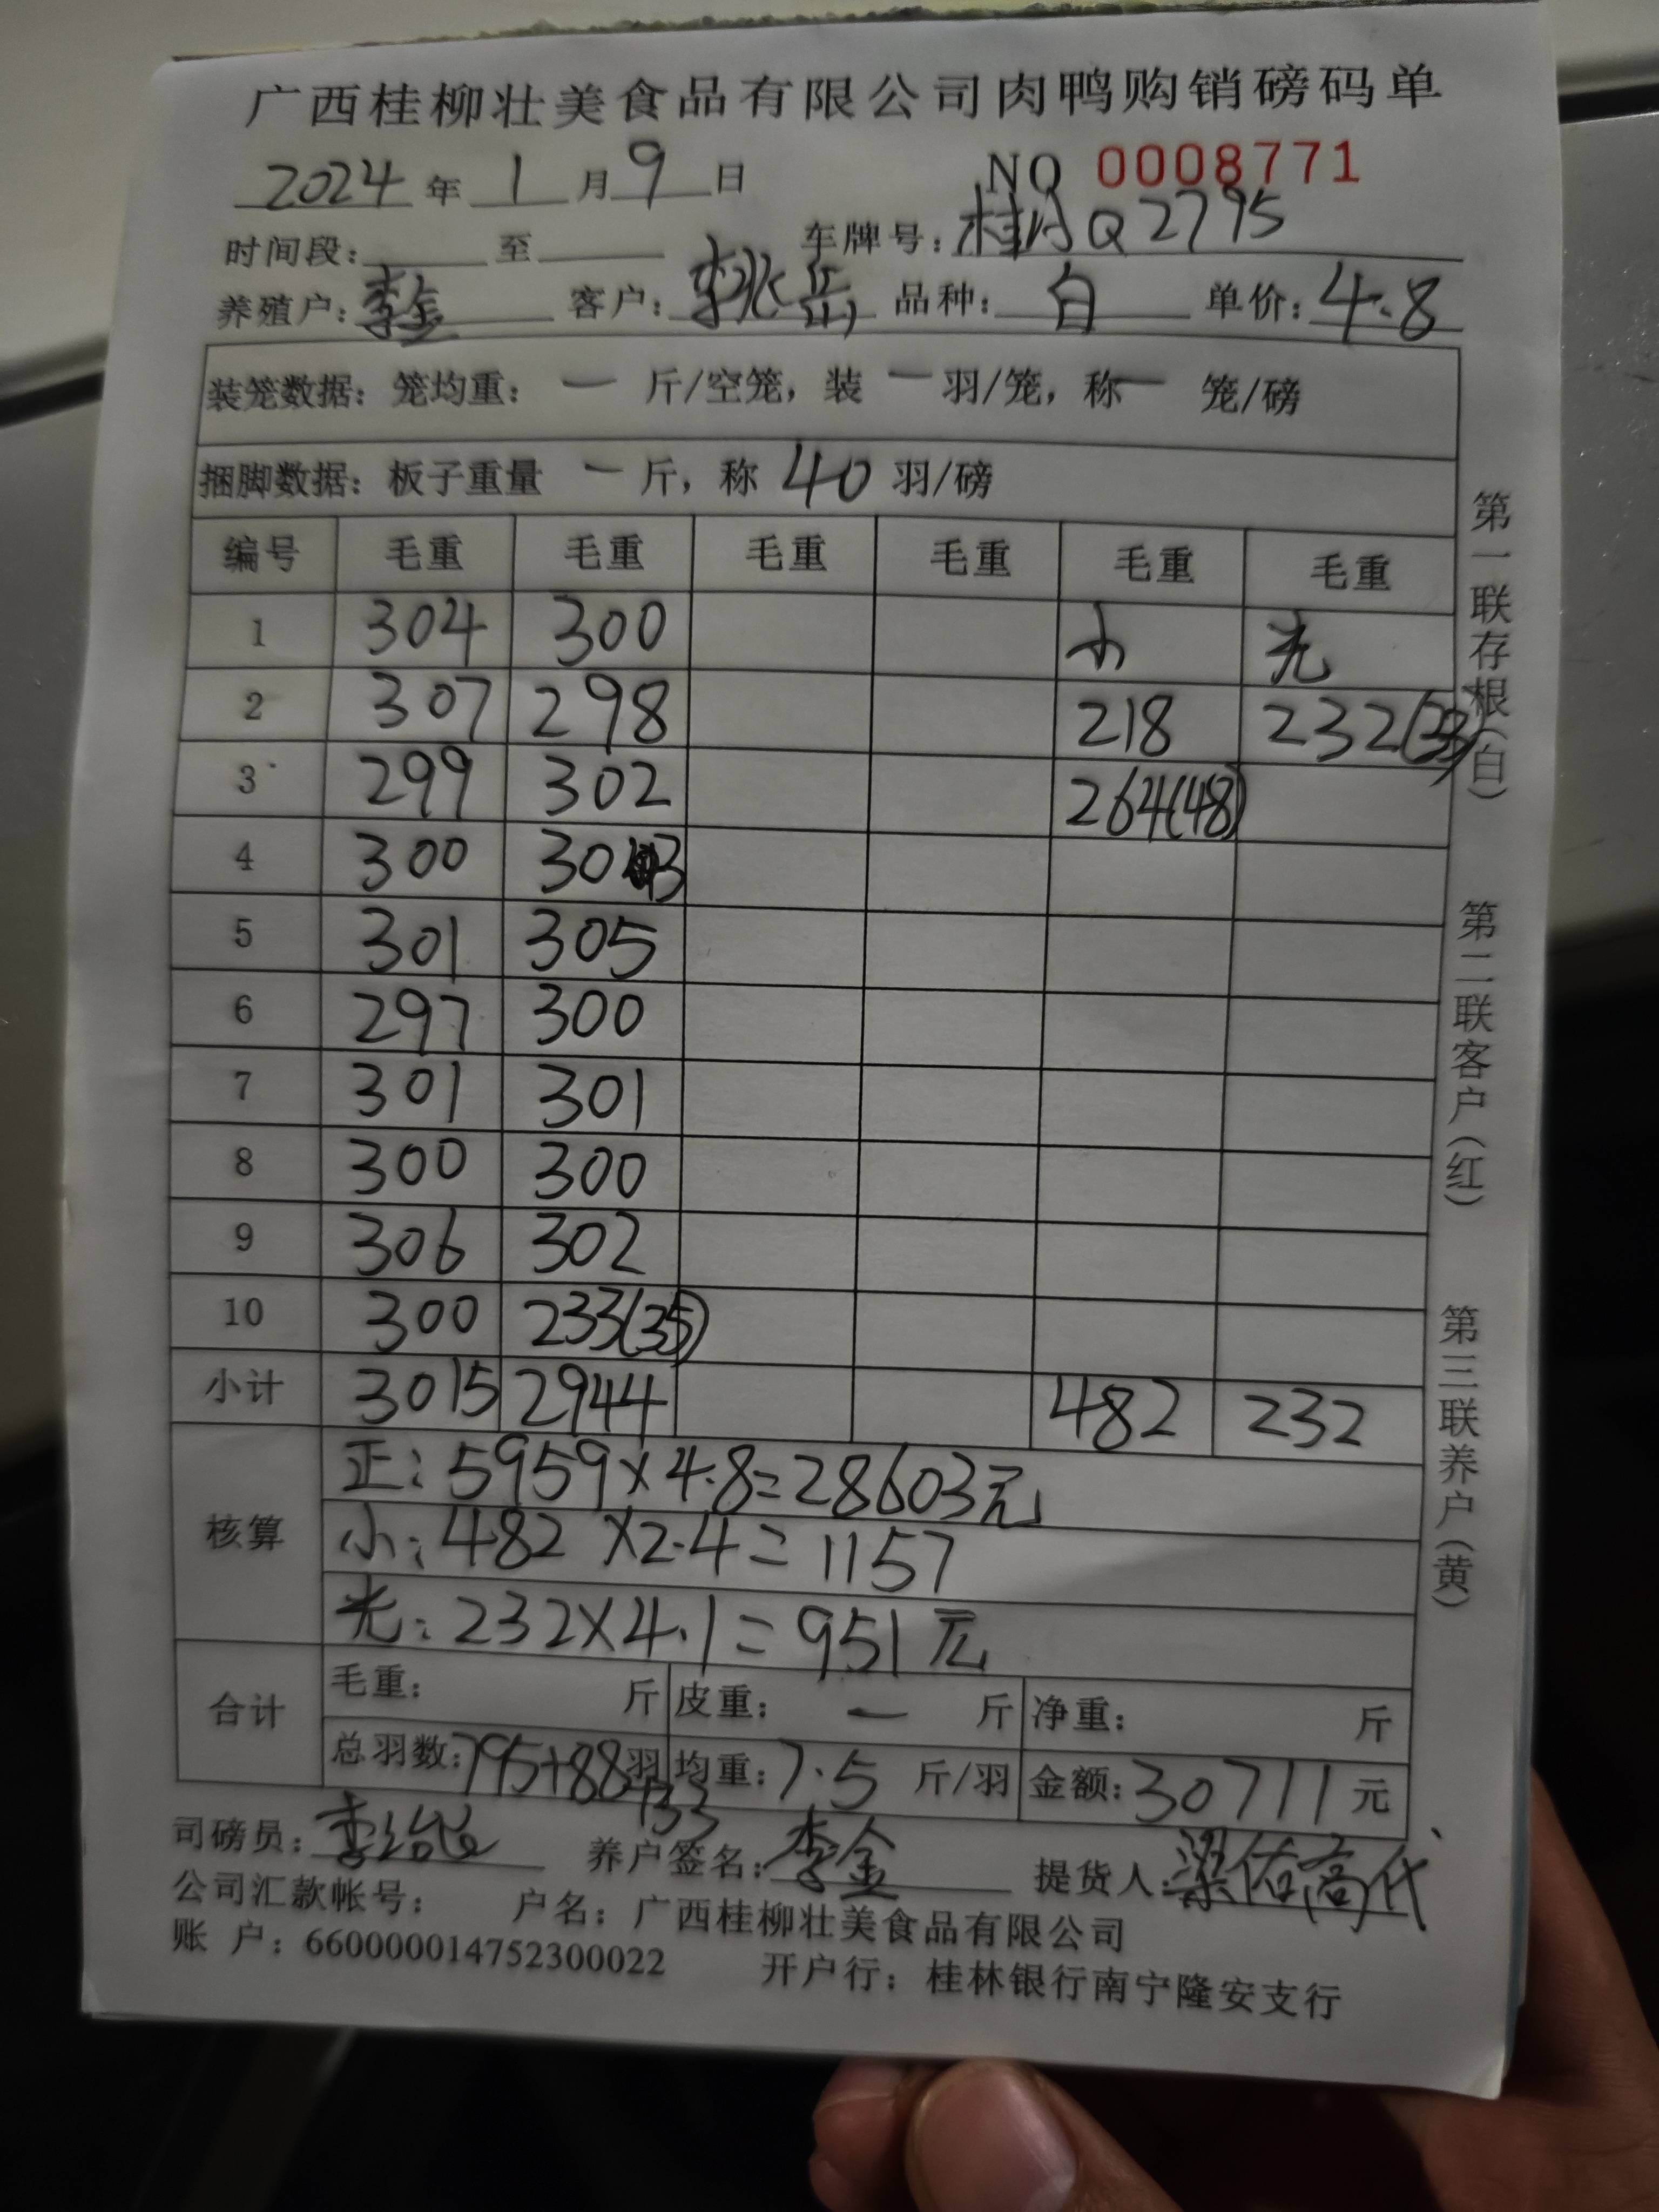 广西桂柳壮美食品有限公司肉鸭购销磅码单
2024年1月9日 NO 0008771
时间段: 至 车牌号: Q2795
养殖户: 李金 客户: 李兆岳 品种: 白 单价: 4.8
装笼数据: 笼均重: — 斤/空笼, 装 — 羽/笼, 称 — 笼/磅
捆脚数据: 板子重量 — 斤, 称 40 羽/磅
编号 毛重 毛重 毛重 毛重 毛重 毛重
1 304 300 小 光
2 307 298 218 232(33)
3 299 302 264(48)
4 300 303
5 301 305
6 297 300
7 301 301
8 300 300
9 306 302
10 300 233(35)
小计 3015 2944 482 232
核算
正: 5959×4.8=28603元
小: 482×2.4=1157
光: 232×4.1=951元
合计
毛重: 斤 皮重: — 斤 净重: 斤
总羽数: 795+88+33羽 均重: 7.5 斤/羽 金额: 30711元
司磅员: 李 养户签名: 李金 提货人: 梁佑高代
公司汇款帐号: 户名: 广西桂柳壮美食品有限公司
账 户: 660000014752300022 开户行: 桂林银行南宁隆安支行
第一联存根(白)
第二联客户(红)
第三联养户(黄)